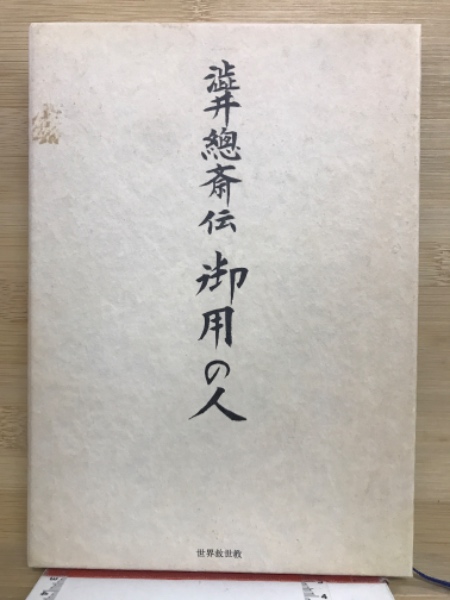 澁井總斎伝 御用の人
世界救世教